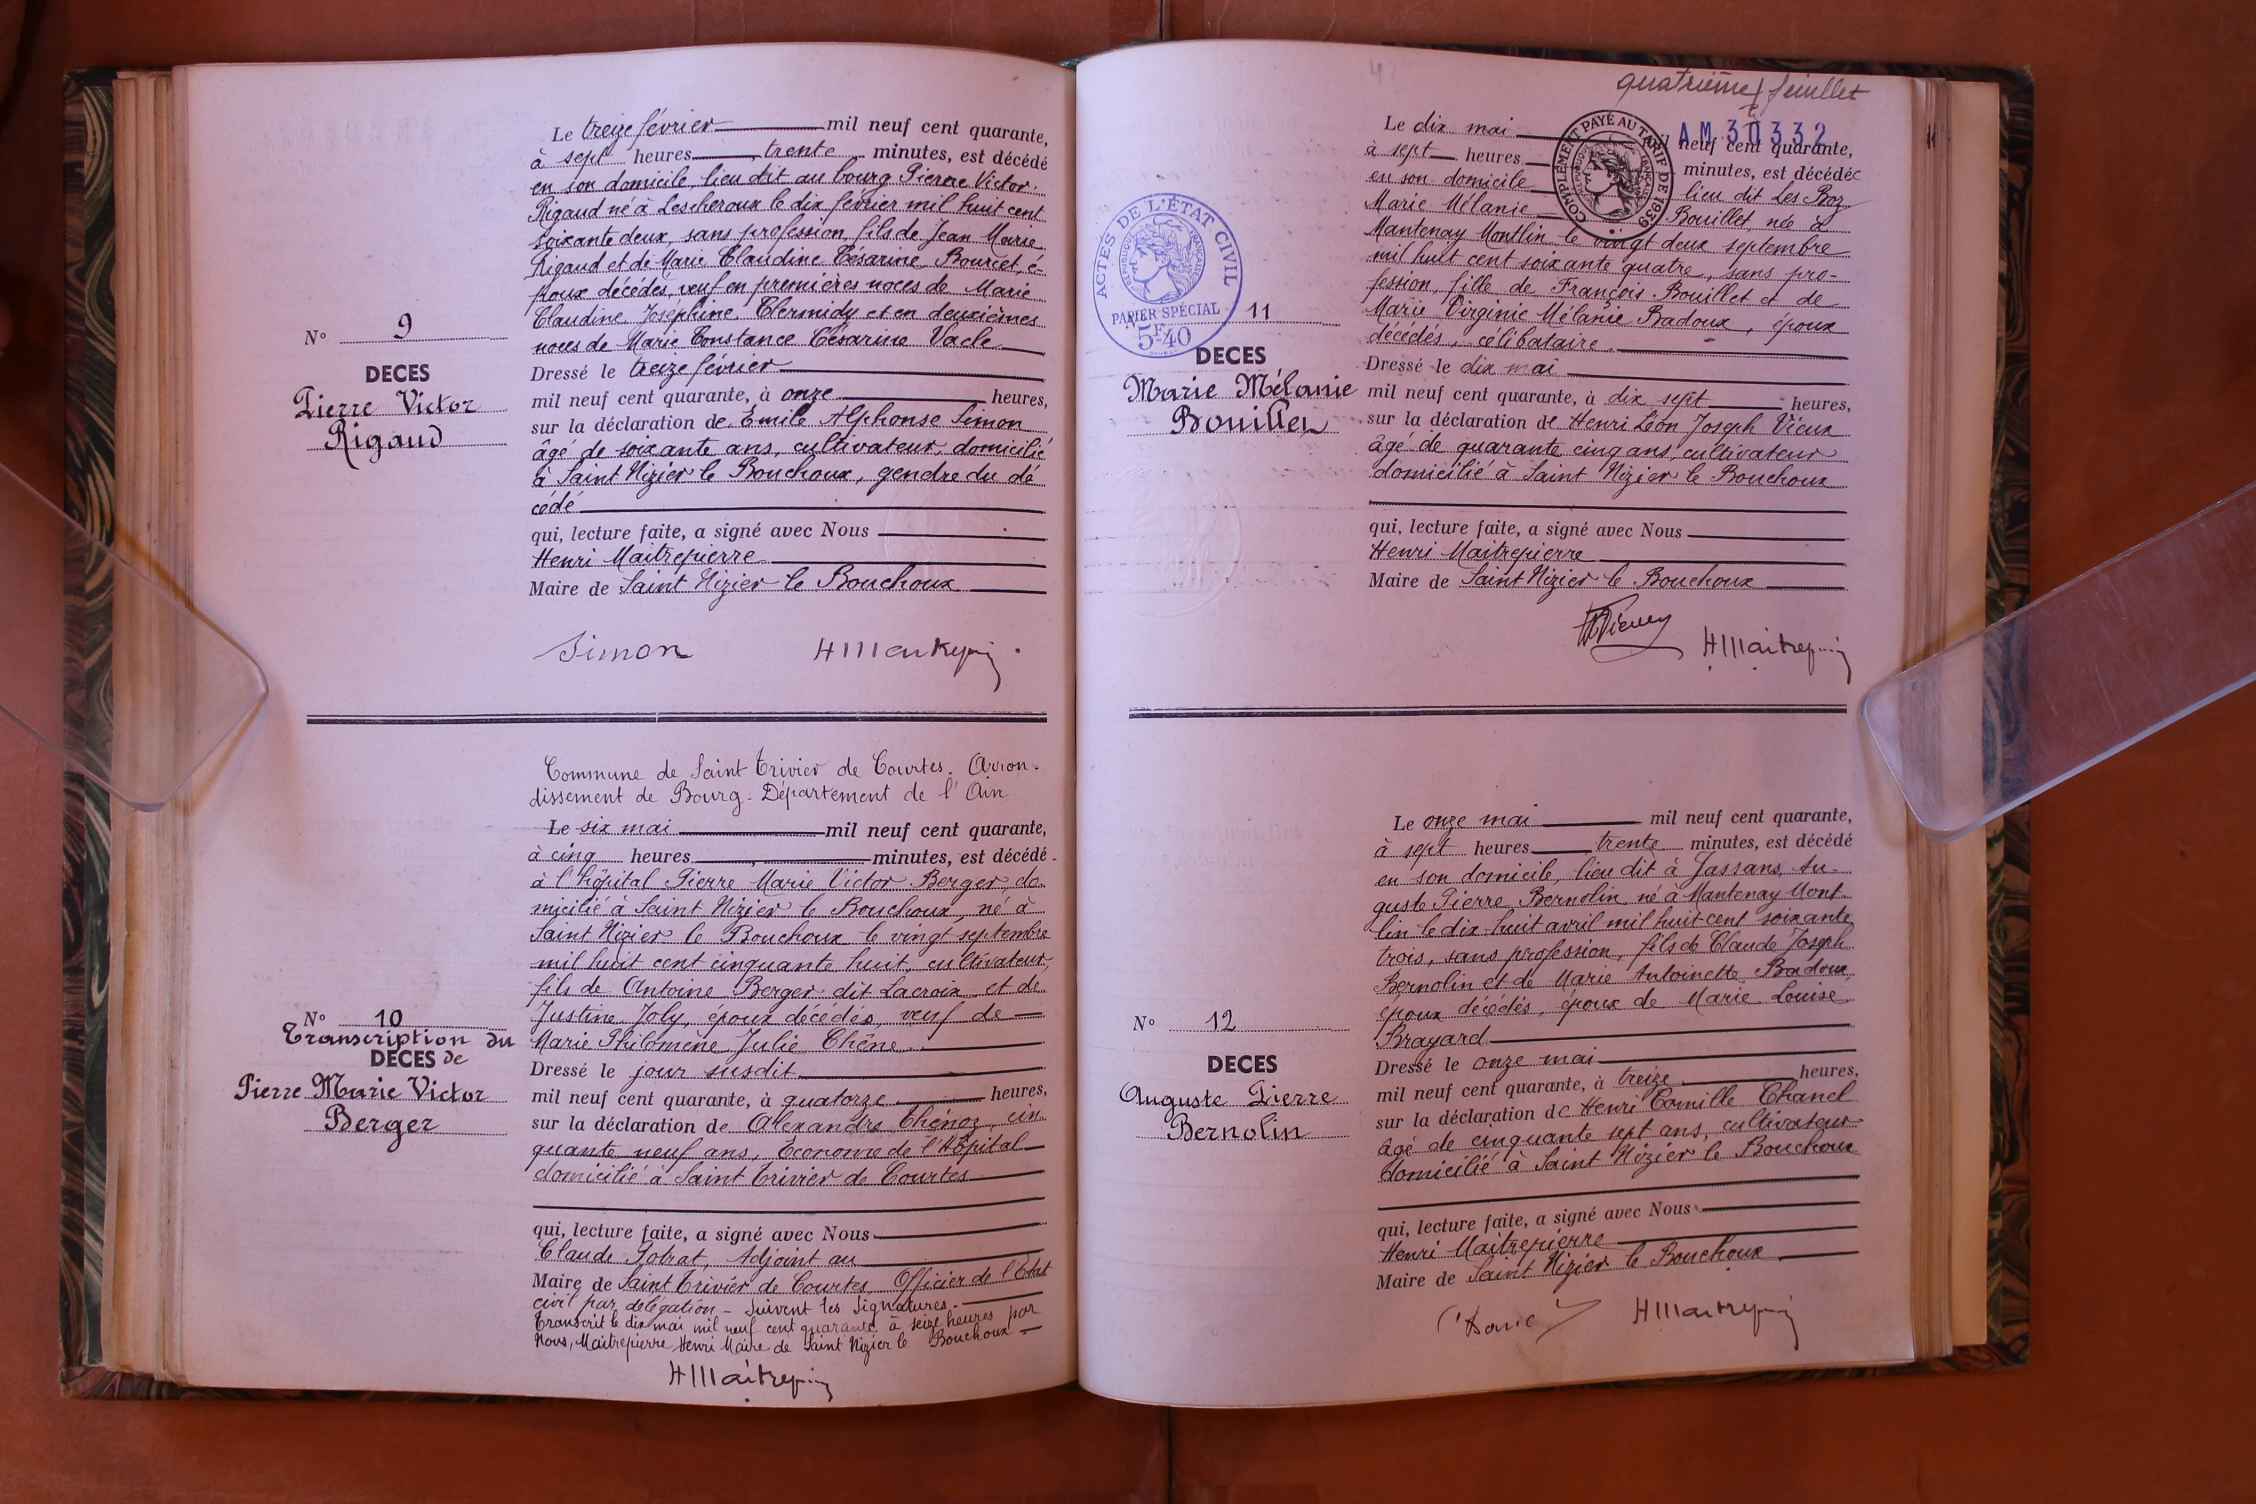 Le treize février mil neuf cent quarante,
à sept heures, trente minutes, est décédé
en son domicile, lieu dit au bourg Pierre Victor
Rigaud né à Lescheroux le dix février mil huit cent
soixante deux, sans profession, fils de Jean Marie
Rigaud et de Marie Claudine Césarine Bourcet, é-
poux décédés, veuf en premières noces de Marie
Claudine Joséphine Clermidy et en deuxièmes
noces de Marie Constance Césarine Vacle
N° 9
DECES
Pierre Victor
Rigaud
Dressé le treize février
mil neuf cent quarante, à onze heures,
sur la déclaration de Emile Alphonse Simon
âgé de soixante ans, cultivateur, domicilié
à Saint Nizier le Bouchoux, gendre du dé
cédé
qui, lecture faite, a signé avec Nous
Henri Maitrepierre
Maire de Saint Nizier le Bouchoux
Simon HMaitrepi
Commune de Saint Trivier de Courtes. Arron-
dissement de Bourg. Département de l'Ain
Le six mai mil neuf cent quarante,
à cinq heures, minutes, est décédé
à l'hôpital Pierre Marie Victor Berger, do-
micilié à Saint Nizier le Bouchoux, né à
Saint Nizier le Bouchoux le vingt septembre
mil huit cent cinquante huit, cultivateur,
fils de Antoine Berger dit Lacroix et de
Justine Joly, époux décédés, veuf de
Marie Philomène Julie Chêne.
N° 10
Transcription du
DECES de
Pierre Marie Victor
Berger
Dressé le jour susdit
mil neuf cent quarante, à quatorze heures,
sur la déclaration de Alexandre Chénoz, cin
quante neuf ans, Econome de l'Hôpital
domicilié à Saint Trivier de Courtes
qui, lecture faite, a signé avec Nous
Claude Adjoint au
Maire de Saint Trivier de Courtes, Officier de l'Etat
civil par délégation - Suivent les signatures.
Transcrit le dix mai mil neuf cent quarante à seize heures par
Nous, Maitrepierre Henri Maire de Saint Nizier le Bouchoux
HMaitrepi
quatrième feuillet
AM 30332
COMPLÉMENT PAYÉ AU TARIF DE 1939
Le dix mai mil neuf cent quarante,
à sept heures minutes, est décédée
en son domicile lieu dit Les Broz
Marie Mélanie Bouillet, née à
Mantenay Montlin le vingt deux septembre
mil huit cent soixante quatre, sans pro-
fession, fille de François Bouillet et de
Marie Virginie Mélanie Badoux, époux
décédés, célibataire.
ACTES DE L'ÉTAT CIVIL
PAPIER SPÉCIAL
5F40
11
DECES
Marie Mélanie
Bouillet
Dressé le dix mai
mil neuf cent quarante, à dix sept heures,
sur la déclaration de Henri Léon Joseph Vieux
âgé de quarante cinq ans, cultivateur
domicilié à Saint Nizier le Bouchoux
qui, lecture faite, a signé avec Nous
Henri Maitrepierre
Maire de Saint Nizier le Bouchoux
HMaitrepi
Le onze mai mil neuf cent quarante,
à sept heures trente minutes, est décédé
en son domicile, lieu dit à Jassans, Au-
guste Pierre Bernolin né à Mantenay Mont-
lin le dix huit avril mil huit cent soixante
trois, sans profession, fils de Claude Joseph
Bernolin et de Marie Antoinette Badoux,
époux décédés, époux de Marie Louise
Brayard
N° 12
DECES
Auguste Pierre
Bernolin
Dressé le onze mai
mil neuf cent quarante, à treize heures,
sur la déclaration de Henri Camille Chanel
âgé de cinquante sept ans, cultivateur
domicilié à Saint Nizier le Bouchoux
qui, lecture faite, a signé avec Nous
Henri Maitrepierre
Maire de Saint Nizier le Bouchoux
HMaitrepi